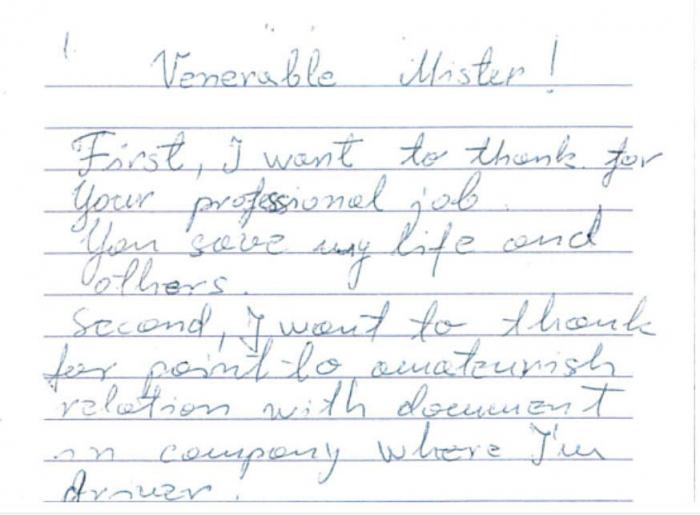 Venerable Mister!
First, I want to thank for
Your professional job.
You save my life and
others.
Second, I want to thank
for point to amateurish
relation with document
in company where I'm
driver.